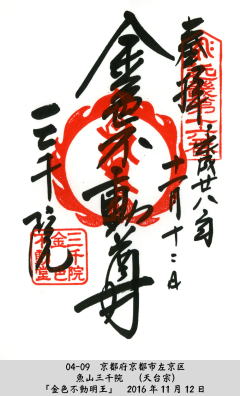 奉拝
平成廿八年
十一月十二日
金色不動尊
三千院
三千院
金色
不動堂
04-09 京都府京都市左京区
魚山三千院 (天台宗)
「金色不動明王」 2016年11月12日